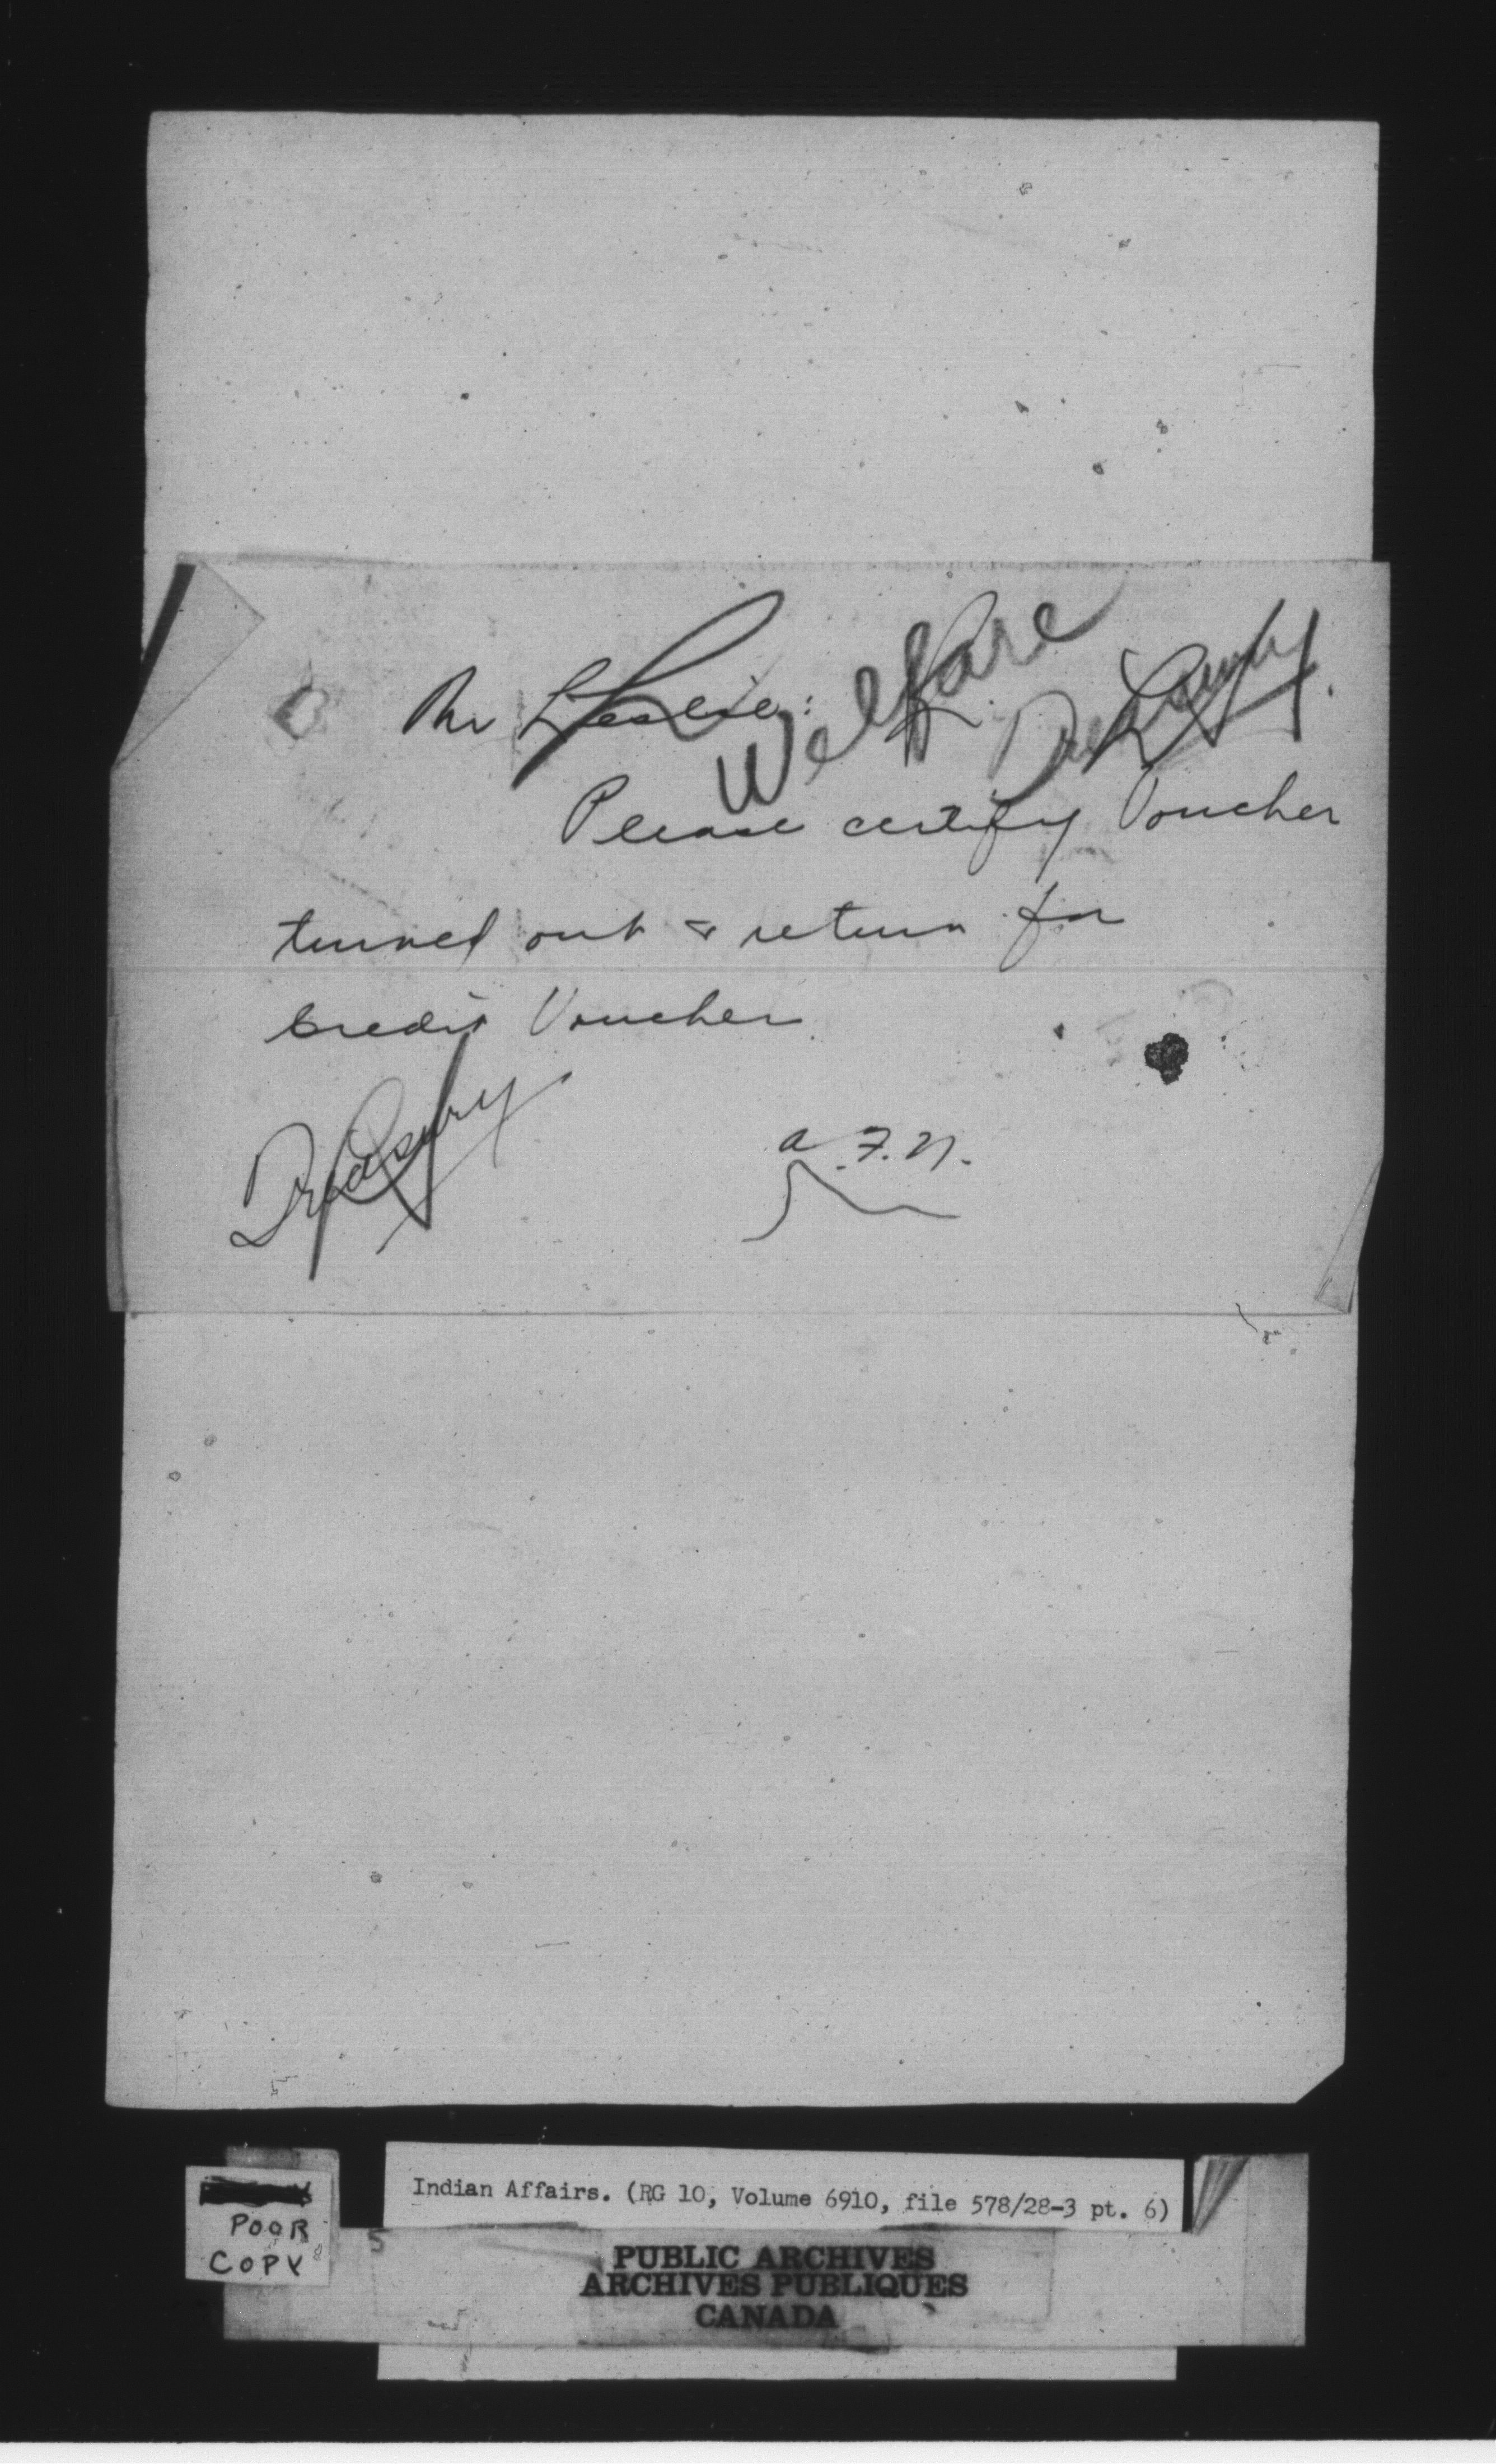 Mr Leslie:
Welfare
Please certify Voucher
turned out & return for
Credit Voucher.
Treasury
A.F.N.
POOR
COPY
Indian Affairs. (RG 10, Volume 6910, file 578/28-3 pt. 6)
PUBLIC ARCHIVES
ARCHIVES PUBLIQUES
CANADA